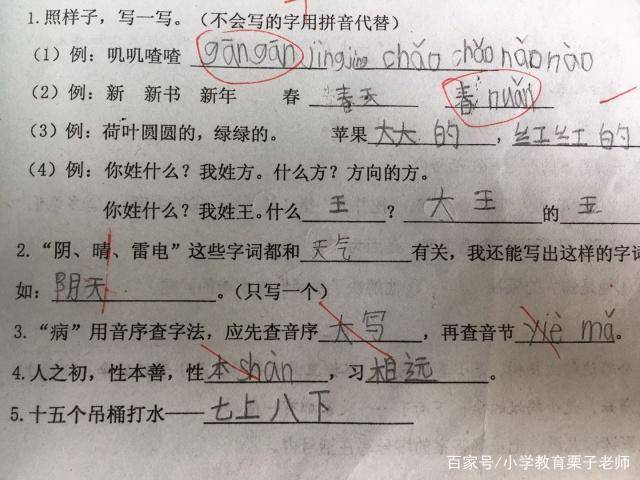 1.照样子，写一写。（不会写的字用拼音代替）
（1）例：叽叽喳喳 gāngān jìngjing chǎo chǎo nǎo nào
（2）例：新 新书 新年 春 春天 春nuǎn
（3）例：荷叶圆圆的，绿绿的。 苹果大大的，红红的
（4）例：你姓什么？我姓方。什么方？方向的方。
你姓什么？我姓王。什么王？大王的王
2.“阴、晴、雷电”这些字词都和天气有关，我还能写出这样的字词
如：阴天。（只写一个）
3.“病”用音序查字法，应先查音序大写，再查音节yiè mǎ。
4.人之初，性本善，性本shàn，习相远。
5.十五个吊桶打水——七上八下
百家号/小学教育栗子老师